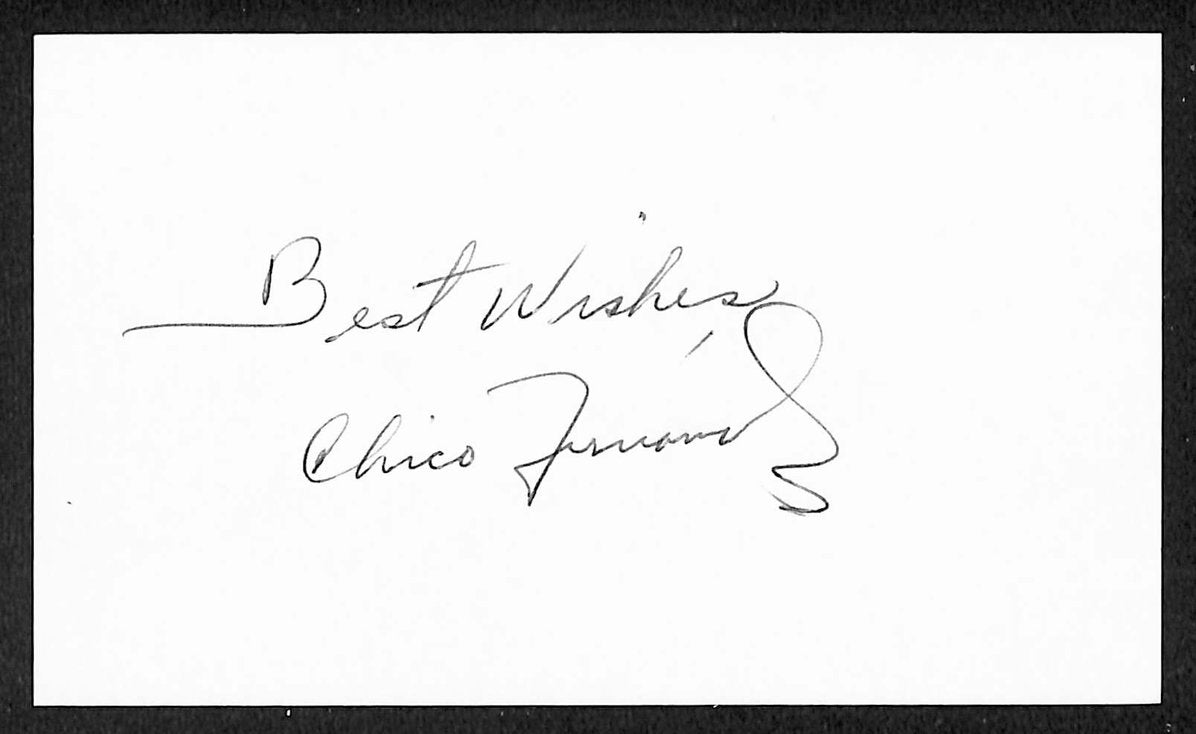 Best Wishes,
Chico Fernandez